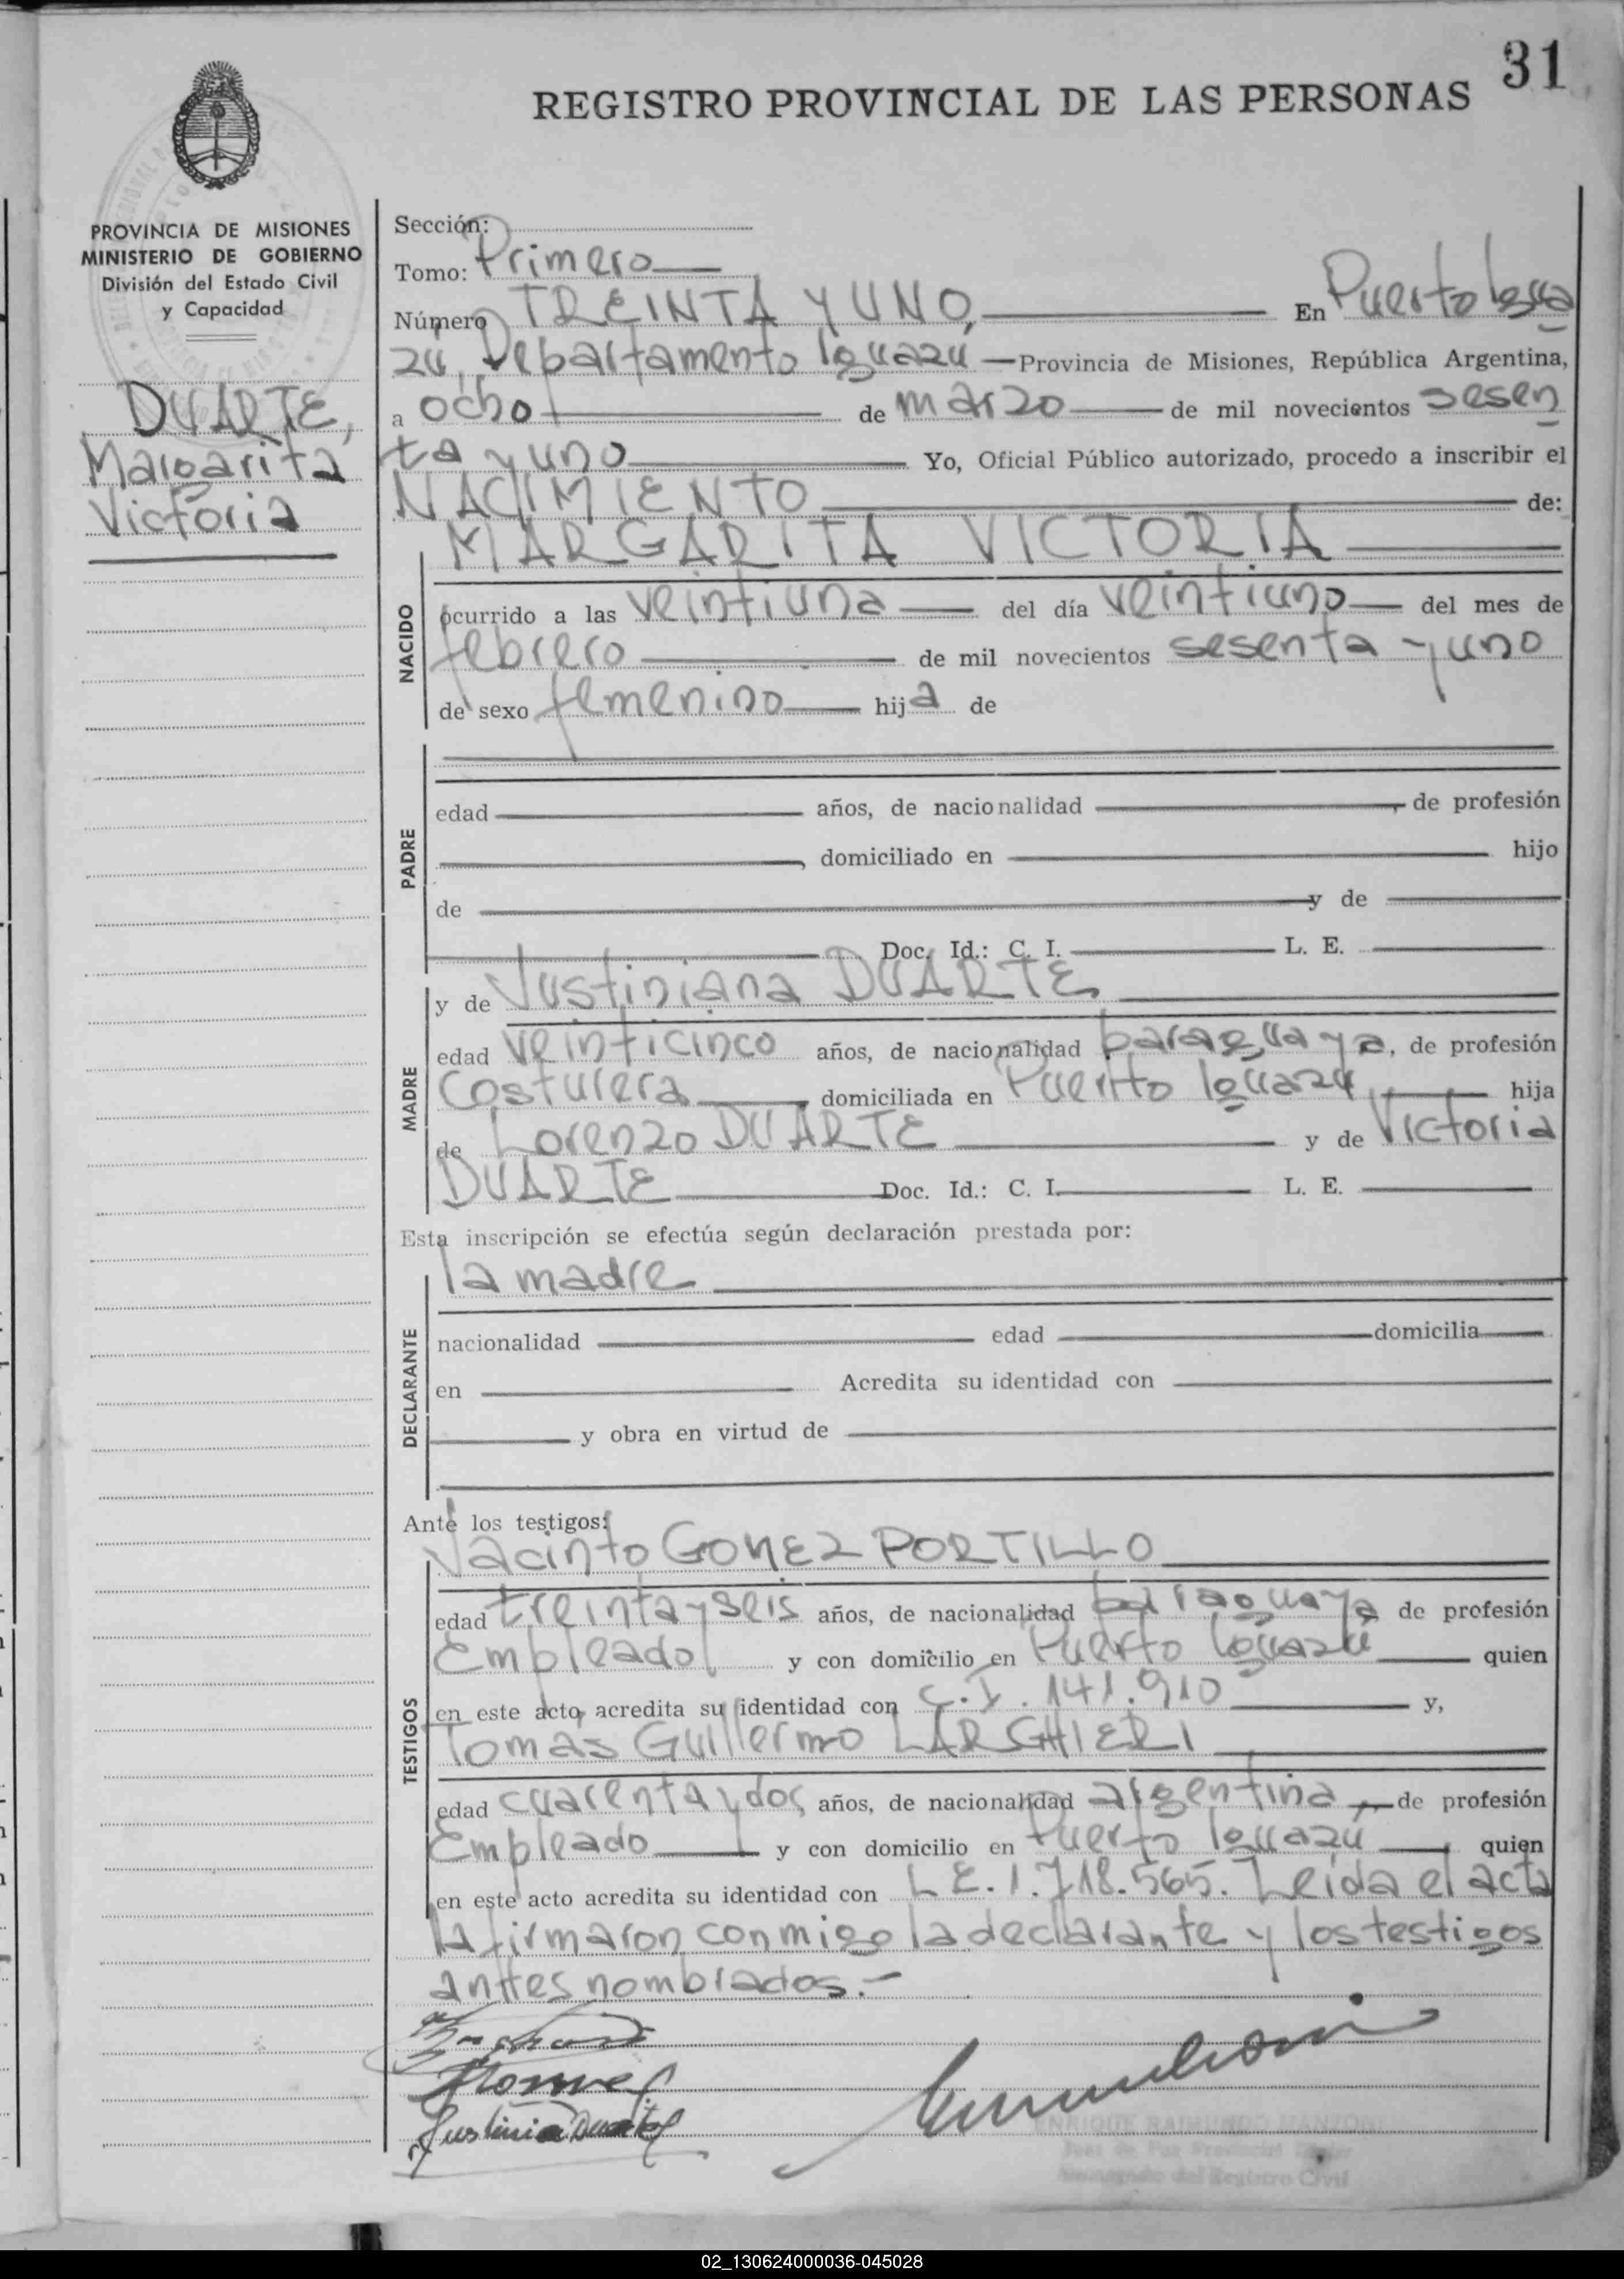 31
REGISTRO PROVINCIAL DE LAS PERSONAS
PROVINCIA DE MISIONES
MINISTERIO DE GOBIERNO
División del Estado Civil
y Capacidad
DUARTE,
Margarita
Victoria
Sección:
Tomo: Primero
Número TREINTA Y UNO, En Puerto Igua
zú, Departamento Iguazú Provincia de Misiones, República Argentina,
a ocho de marzo de mil novecientos sesen
ta y uno Yo, Oficial Público autorizado, procedo a inscribir el
NACIMIENTO de:
NACIDO
MARGARITA VICTORIA
ocurrido a las veintiuna del día veintiuno del mes de
febrero de mil novecientos sesenta y uno
de sexo femenino hija de
PADRE
edad años, de nacionalidad , de profesión
, domiciliado en hijo
de y de
Doc. Id.: C. I. L. E.
MADRE
y de Justiniana DUARTE
edad veinticinco años, de nacionalidad paraguaya, de profesión
Costurera, domiciliada en Puerto Iguazú, hija
de Lorenzo DUARTE y de Victoria
DUARTE Doc. Id.: C. I. L. E.
Esta inscripción se efectúa según declaración prestada por:
DECLARANTE
la madre
nacionalidad edad domicilia
en Acredita su identidad con
y obra en virtud de
Ante los testigos:
TESTIGOS
Jacinto GOMEZ PORTILLO
edad treinta y seis años, de nacionalidad paraguaya de profesión
Empleado y con domicilio en Puerto Iguazú quien
en este acto acredita su identidad con C.I. 141.910 y,
Tomas Guillermo LARGHIERI
edad cuarenta y dos años, de nacionalidad argentina, de profesión
Empleado y con domicilio en Puerto Iguazú, quien
en este acto acredita su identidad con L.E. 1.718.565. Leída el acta
la firmaron conmigo la declarante y los testigos
antes nombrados.-
Justiniana Duarte
ENRIQUE RAIMUNDO MANZONI
Juez de Paz Provincial
Encargado del Registro Civil
02_130624000036-045028